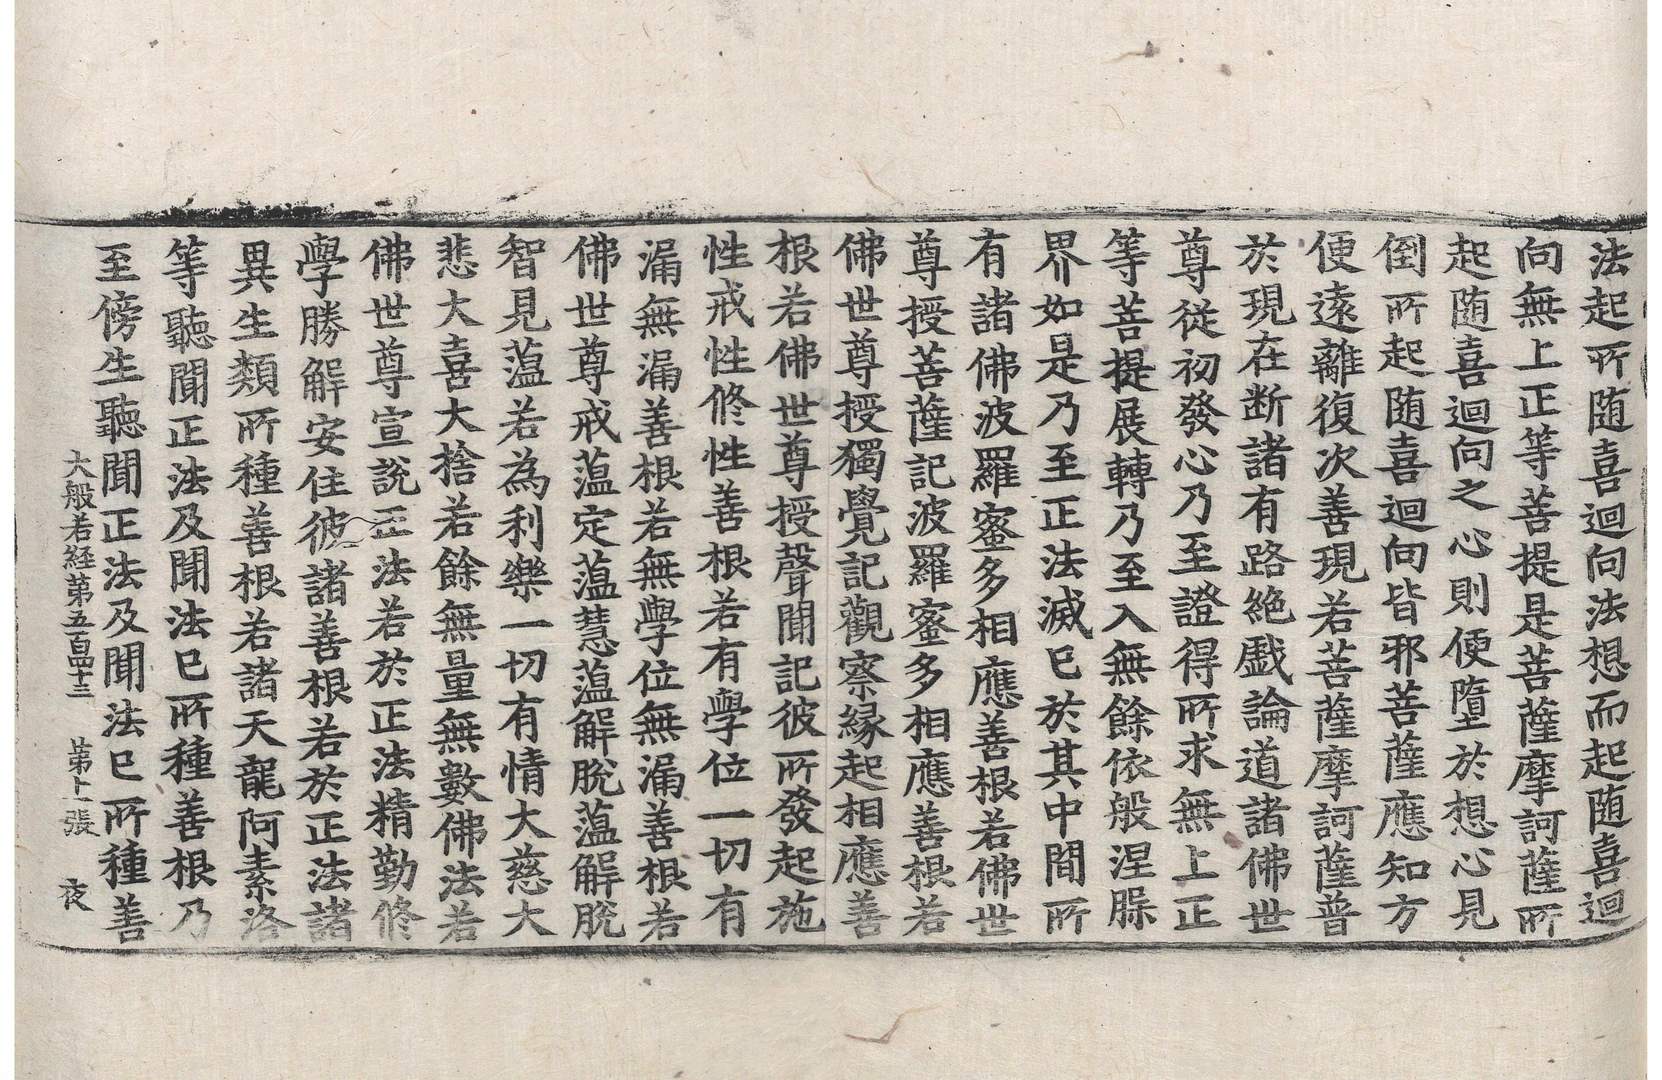 法起所随喜迴向法想而起随喜迴
向無上正等菩提是菩薩摩訶薩所
起随喜迴向之心則便墮於想心見
倒所起随喜迴向皆邪菩薩應知方
便遠離復次善現若菩薩摩訶薩普
於現在断諸有路絶戲論道諸佛世
尊從初發心乃至證得所求無上正
等菩提展轉乃至入無餘依般涅槃
界如是乃至正法滅已於其中間所
有諸佛波羅蜜多相應善根若佛世
尊授菩薩記波羅蜜多相應善根若
佛世尊授獨覺記觀察縁起相應善
根若佛世尊授聲聞記彼所發起施
性戒性修性善根若有學位一切有
漏無漏善根若無學位無漏善根若
佛世尊戒蕰定蕰慧蕰解脫蕰解脫
智見蕰若為利樂一切有情大慈大
悲大喜大捨若餘無量無數佛法若
佛世尊宣説正法若於正法精勤修
學勝解安住彼諸善根若於正法諸
異生類所種善根若諸天龍阿素洛
等聽聞正法及聞法已所種善根乃
至傍生聽聞正法及聞法已所種善
大般若経第五百四十三 第十一張 夜